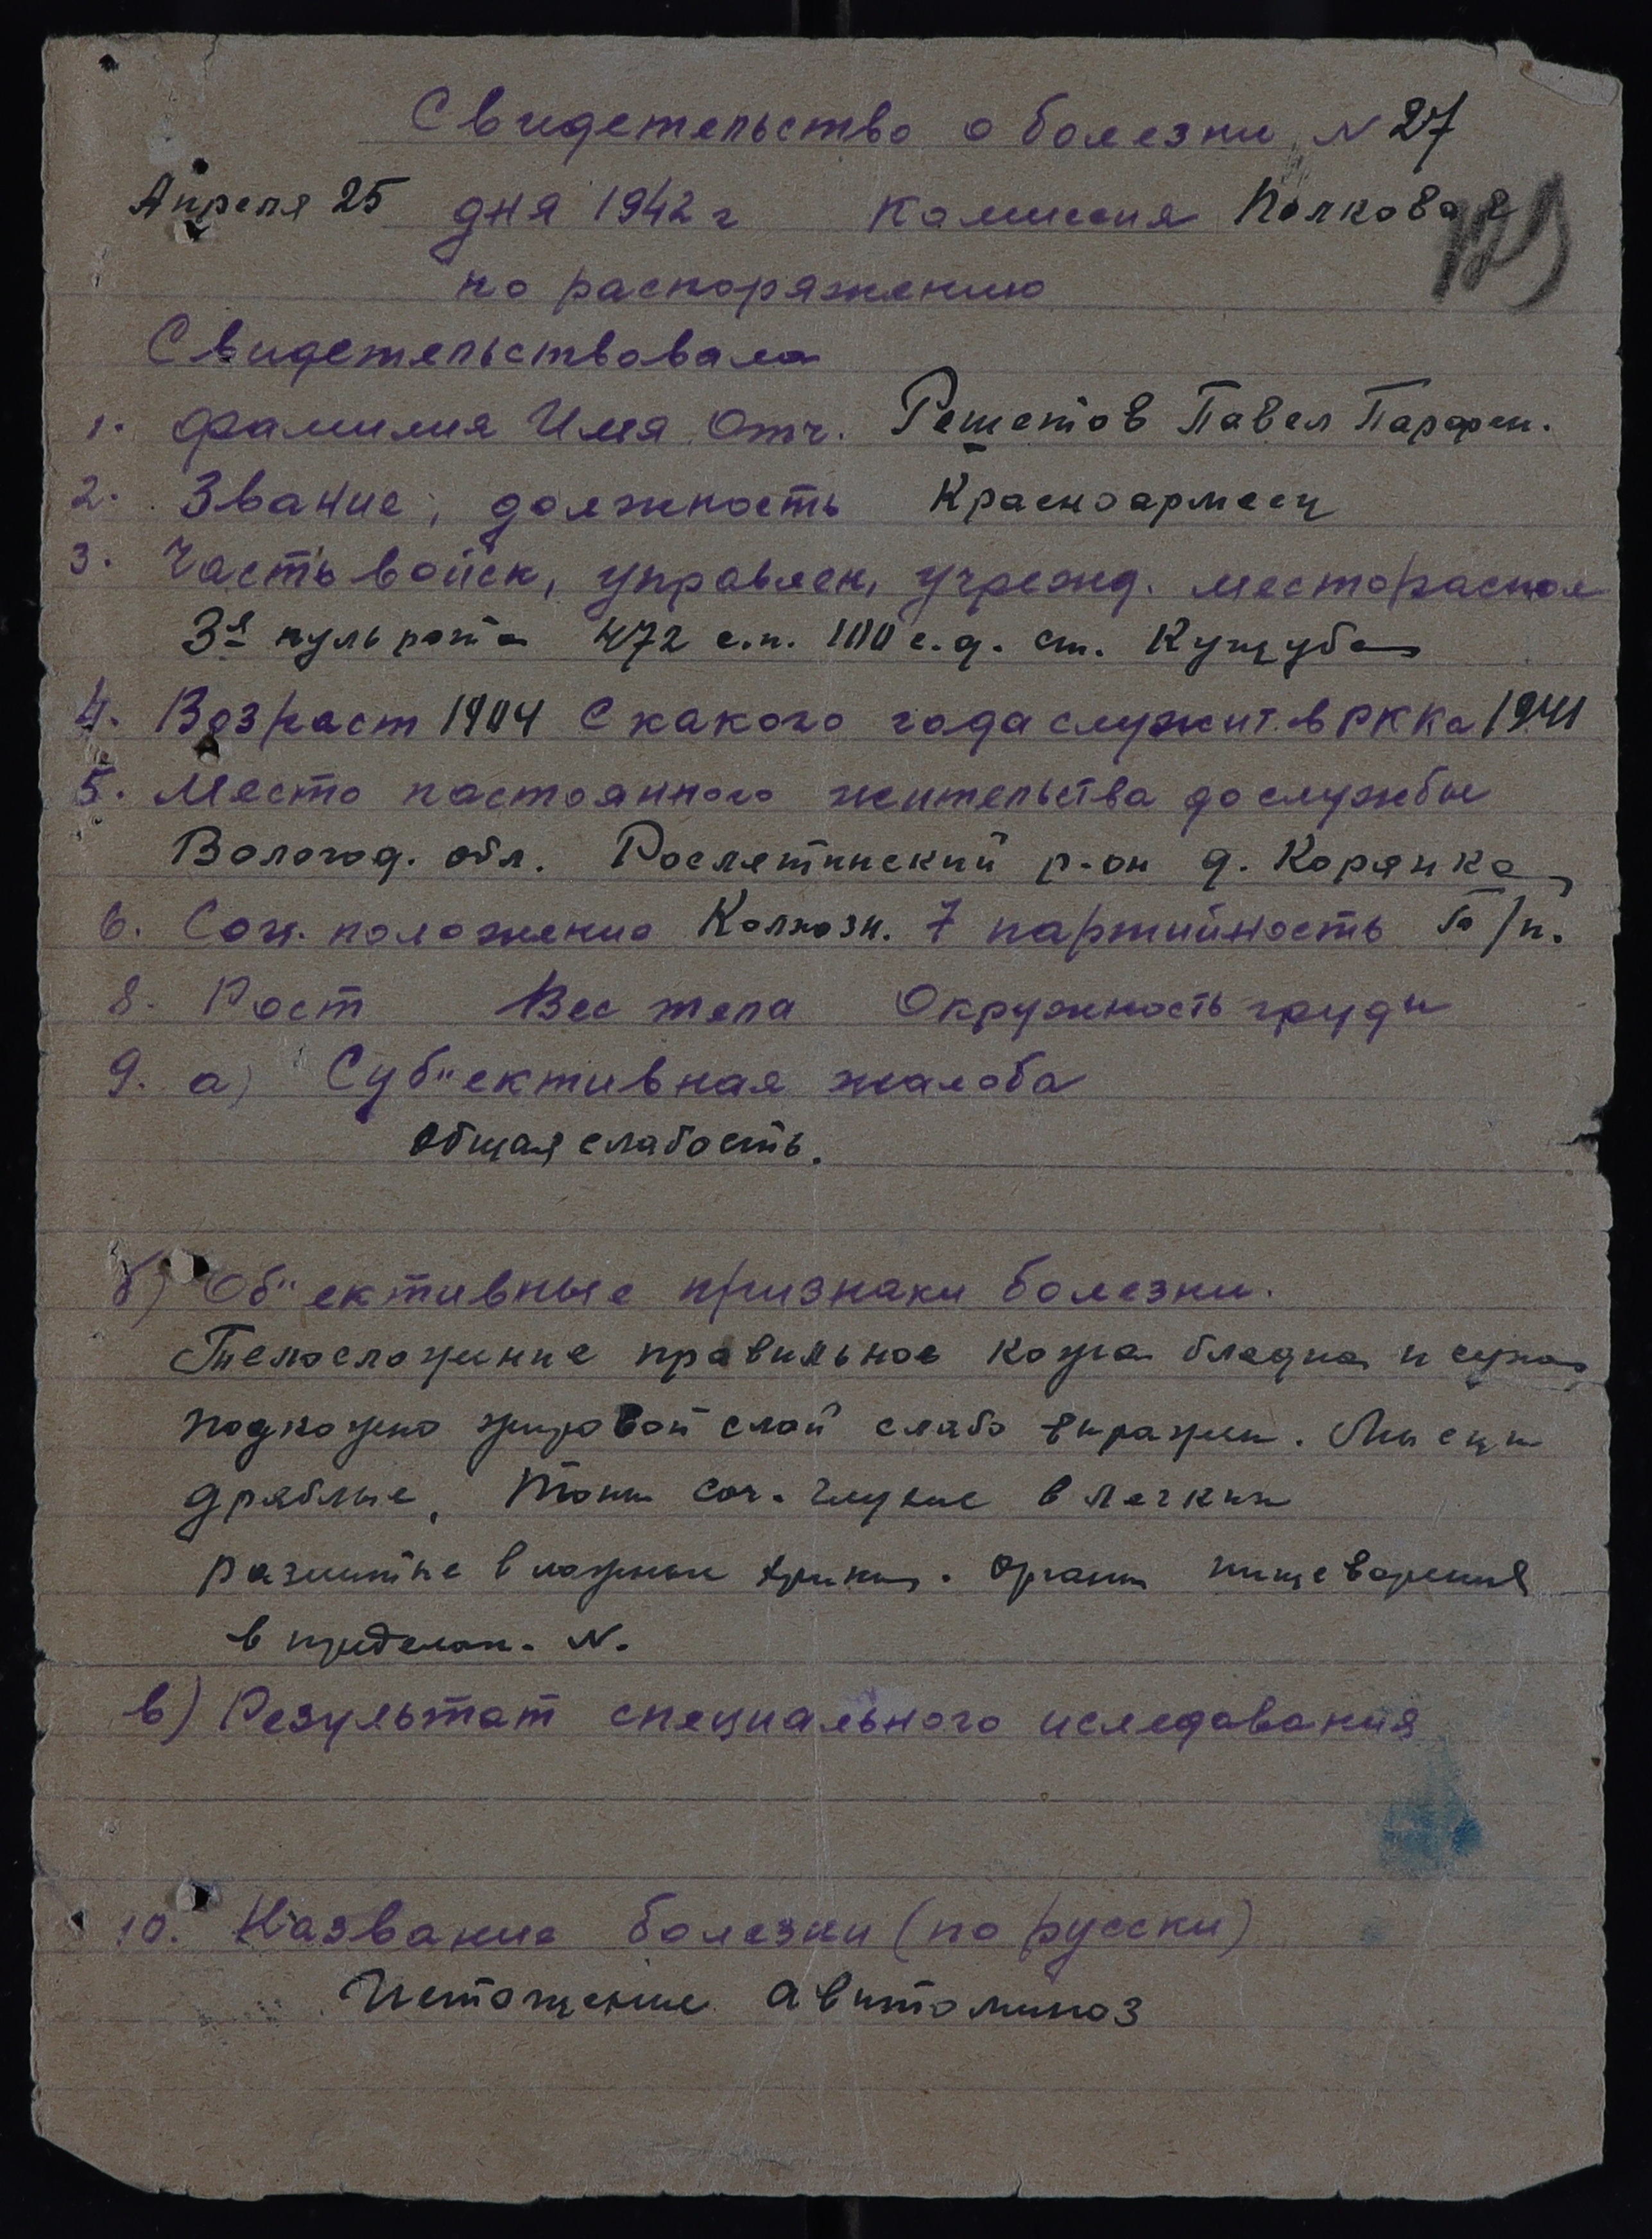 Свидетельство о болезни N 27
Апреля 25 дня 1942 г Комиссия Полковая
по распоряжению
Свидетельствовала
1. Фамилия Имя Отч. Решетов Павел Парфен.
2. Звание, должность Красноармеец
3. Часть войск, управлен, учрежд. местораспол
3я пульрота 472 с.п. 100 с.д. ст. Кущуба
4. Возраст 1904 С какого года служит в РККа 1941
5. Место постоянного жительства до службы
Вологод. обл. Рослятинский р-он д. Корянка
6. Соц. положение Колхозн. 7 партийность б/п.
8. Рост Вес тела Окружность груди
9. а) Суб"ективная жалоба
общая слабость.
б) Об"ективные признаки болезни.
Телосложение правильное кожа бледна и суха
подкожно жировой слой слабо выражен. Мысцы
дряблые, тоны сер. глухие в легких
разлитые влажные хрипы. органы пищеварения
в пределах. N.
в) Результат специального иследования
10. Название болезни (по русски)
Истощение авитоминоз